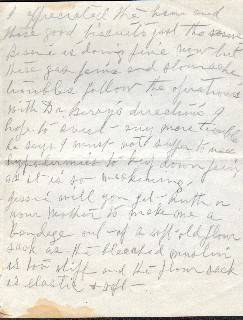 I appreciated the ham and
those good biscuits just the same
is doing fine now but
these gas pains and stomache
troubles follow the operations
with Dr Berry's directions I
hope to avoid any more trouble
he says I must not suffer to use
hypodermics to keep down pain
as it is so weakening.
will you get Ruth or
your mother to make me a
bandage out of a soft old flour
sack as the bleached muslin
is too stiff and the flour sack
is elastic & soft —